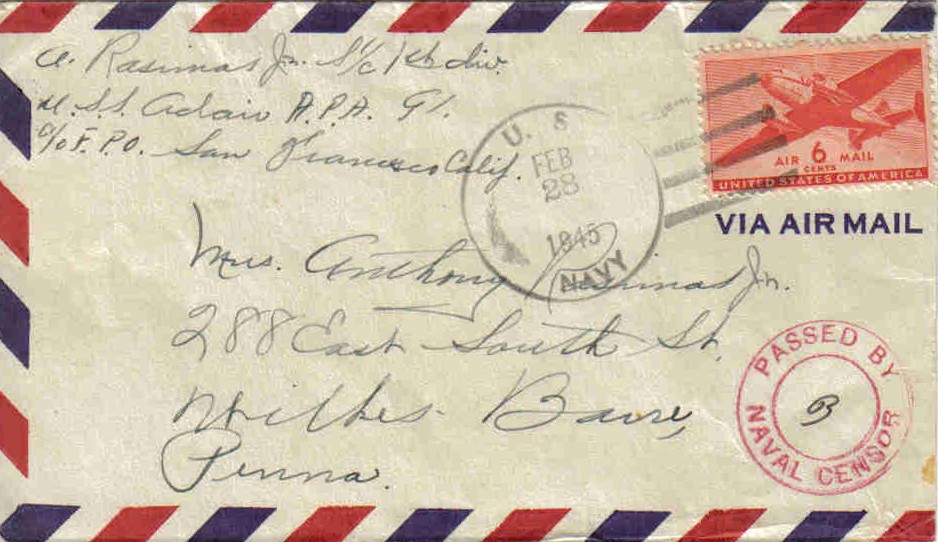 A. Rasimas Jr. S1/c 1st div.
U.S.S. Adair A.P.A. 91.
c/o F.P.O. San Francisco Calif.
U. S.
FEB
28
1945
NAVY
AIR 6 MAIL
CENTS
UNITED STATES OF AMERICA
VIA AIR MAIL
Mrs. Anthony Rasimas Jr.
288 East South St.
Wilkes Barre,
Penna.
PASSED BY
B
NAVAL CENSOR